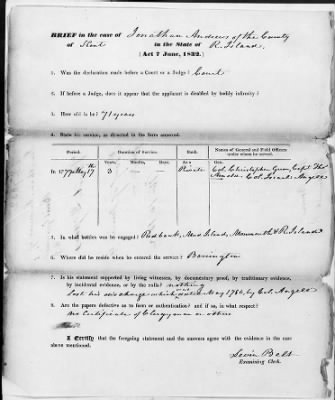 BRIEF in the case of Jonathan Andrews of the County
of Kent in the State of R. Island.
(Act 7 June, 1832.)
1. Was the declaration made before a Court or a Judge? Court
2. If before a Judge, does it appear that the applicant is disabled by bodily infirmity?
3. How old is he? 71 years
4. State his service, as directed in the form annexed.
Period. Duration of Service. Rank. Names of General and Field Officers under whom he served.
Years. Months. Days. As a Gen.
In 1777 May 17th 3 — — Private Col. Christopher Capt. Thos
Col. Israel Angell
5. In what battles was he engaged? Red bank, Mud Island, Monmouth & R. Island
6. Where did he reside when he entered the service? Barrington
7. Is his statement supported by living witnesses, by documentary proof, by traditionary evidence,
by incidental evidence, or by the rolls? nothing
Lost his discharge which May 1780, by Col. Angell
8. Are the papers defective as to form or authentication? and if so, in what respect?
no Certificate of Clergyman or others
I Certify that the foregoing statement and the answers agree with the evidence in the case
above mentioned.
Examining Clerk.